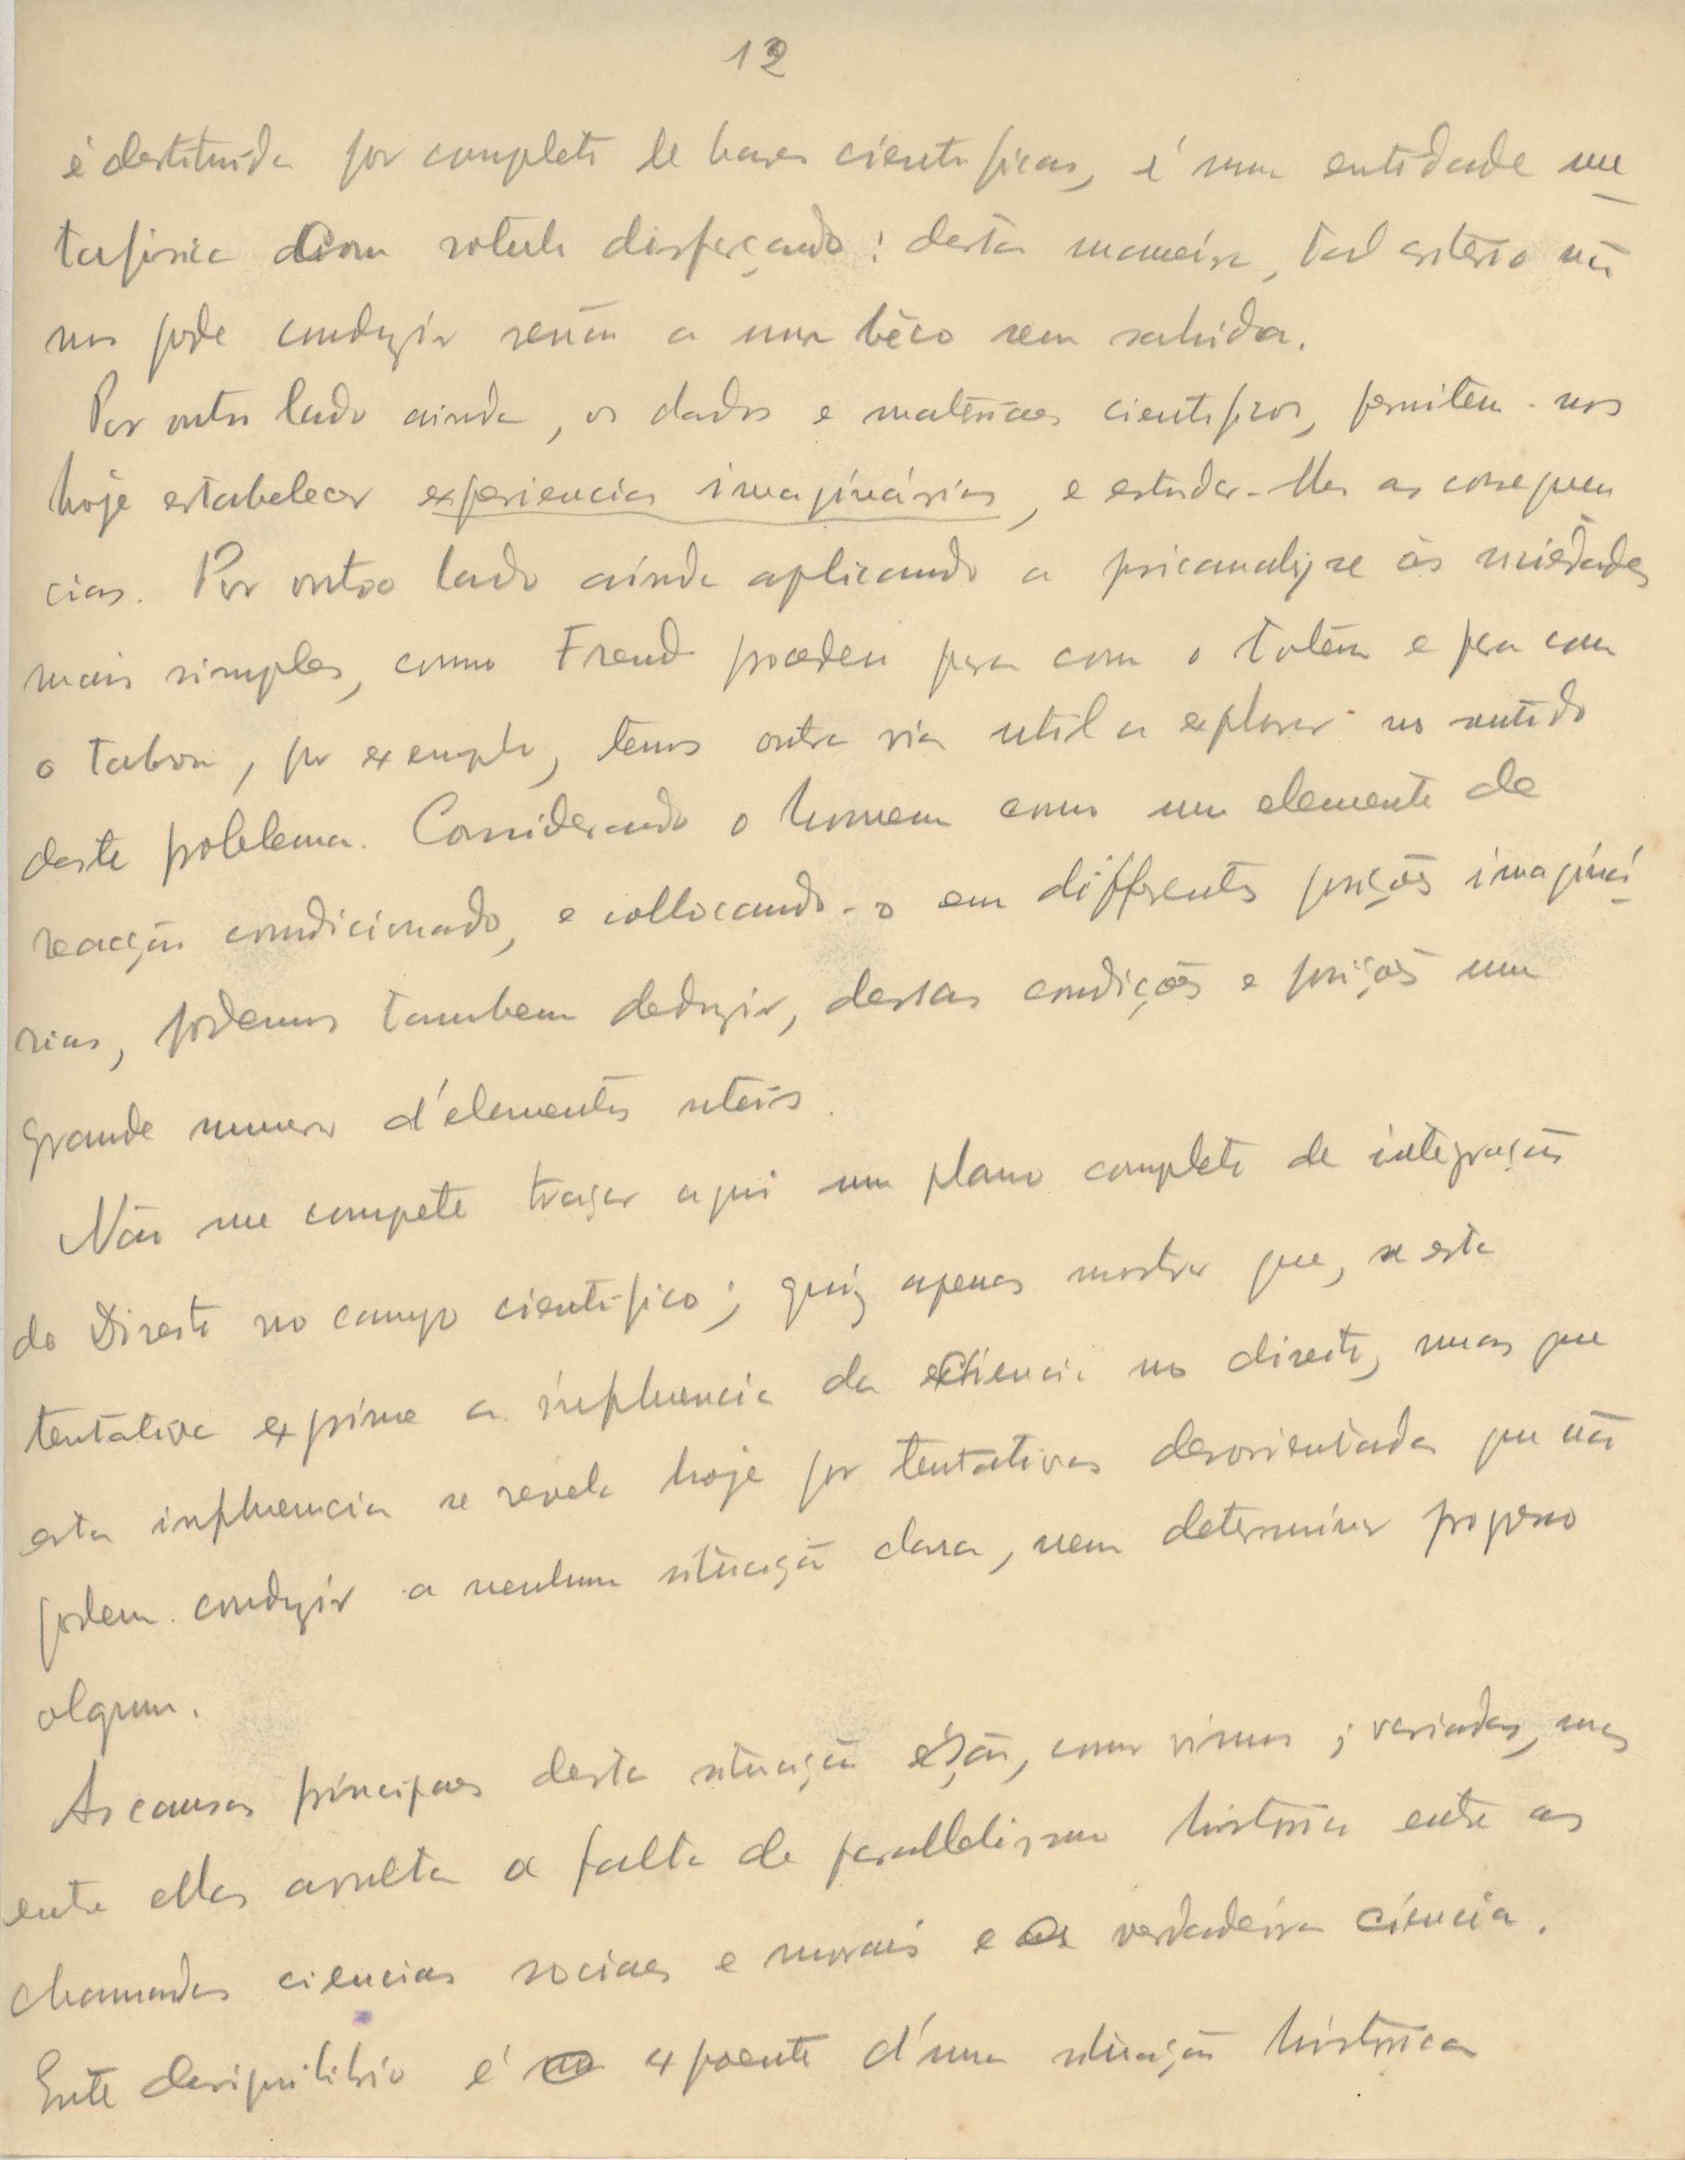 12
é destituída por completo de bases cientificas, é uma entidade me
tafisica com rotulo disfarçando: desta maneira, tal criterio não
nos pode conduzir senão a um bêco sem sahida.
Por outro lado ainda, os dados e materiaes cientificos, permitem-nos
hoje estabelecer experiencias imaginárias, e estudar-lhes as consequen
cias. Por outro lado ainda aplicando a psicanalyse ás sociedades
mais simples, como Freud procedeu para com o totem e para com
o tabou, por exemplo, temos outra via util a explorar no sentido
deste problema. Considerando o homem como um elemento de
reacção condicionado, e collocando-o em differentes posições imaginá
rias, podemos tambem deduzir, dessas condições e posições um
grande numero d'elementos uteis.
Não me compete traçar aqui um plano completo de integração
do Direito no campo cientifico; quiz apenas mostrar que, se esta
tentativa exprime a influencia da ciencia no direito, mas que
esta influencia se revela hoje por tentativas desorientadas que não
podem conduzir a nenhuma situação clara, nem determinar progresso
algum.
As causas principaes desta situação são, como vimos, variadas, mas
entre ellas avulta a falta de parallelismo historico entre as
chamadas ciencias sociaes e morais e a verdadeira ciencia.
Este desiquilibrio é expoente d'uma situação historica